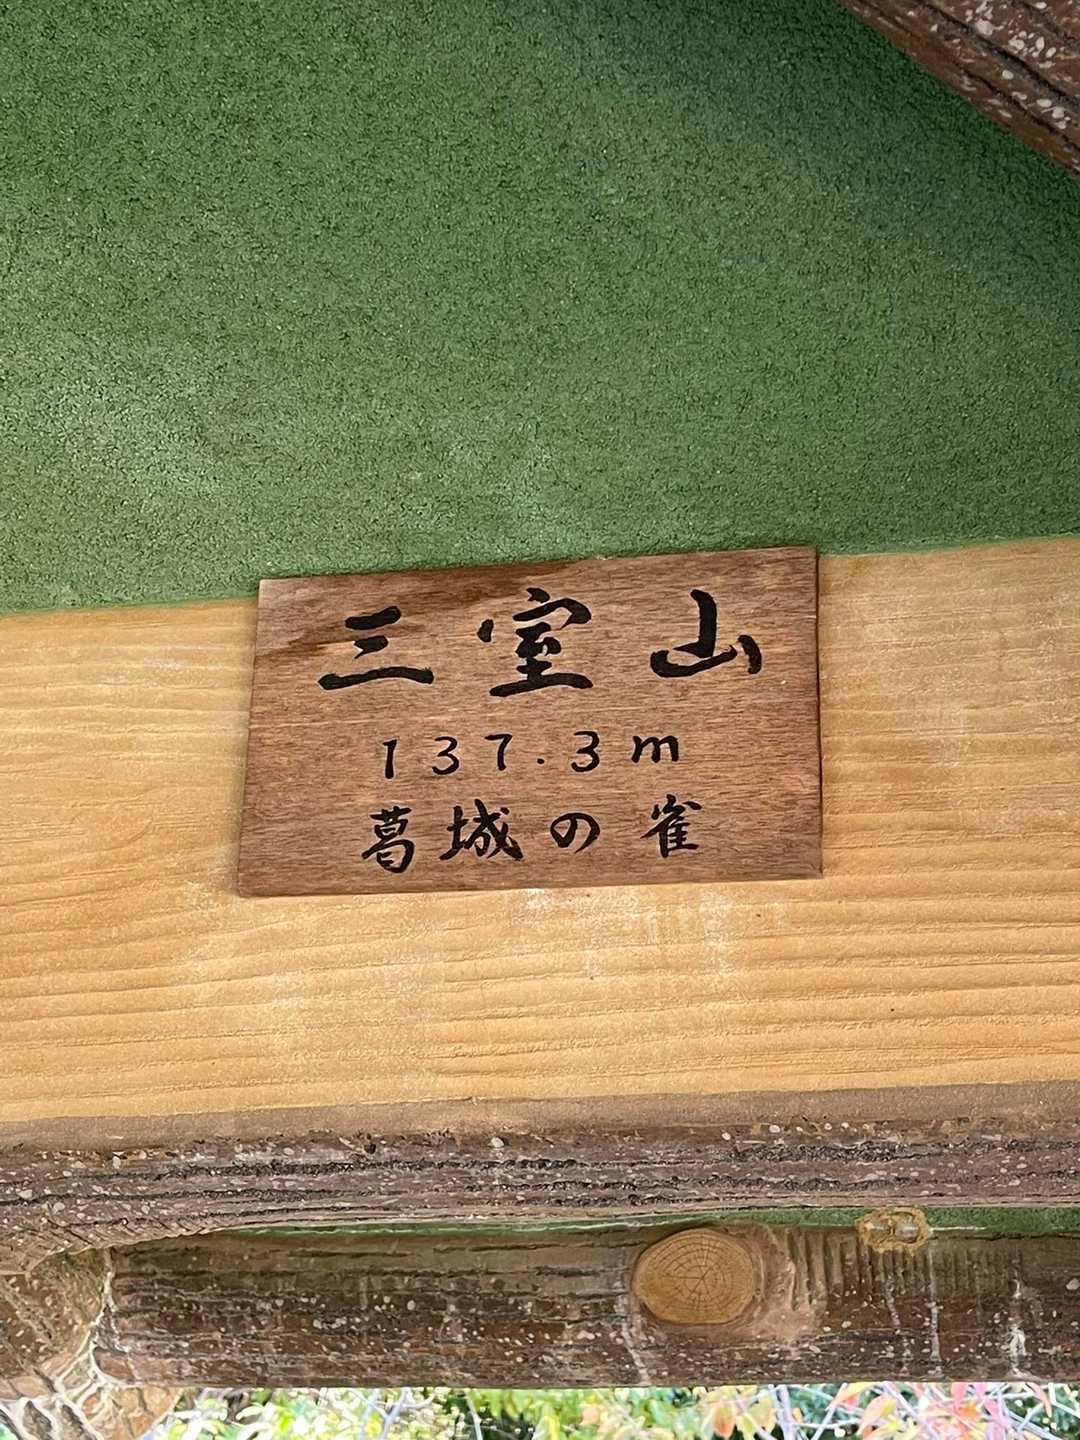 三室山
137.3m
葛城の雀